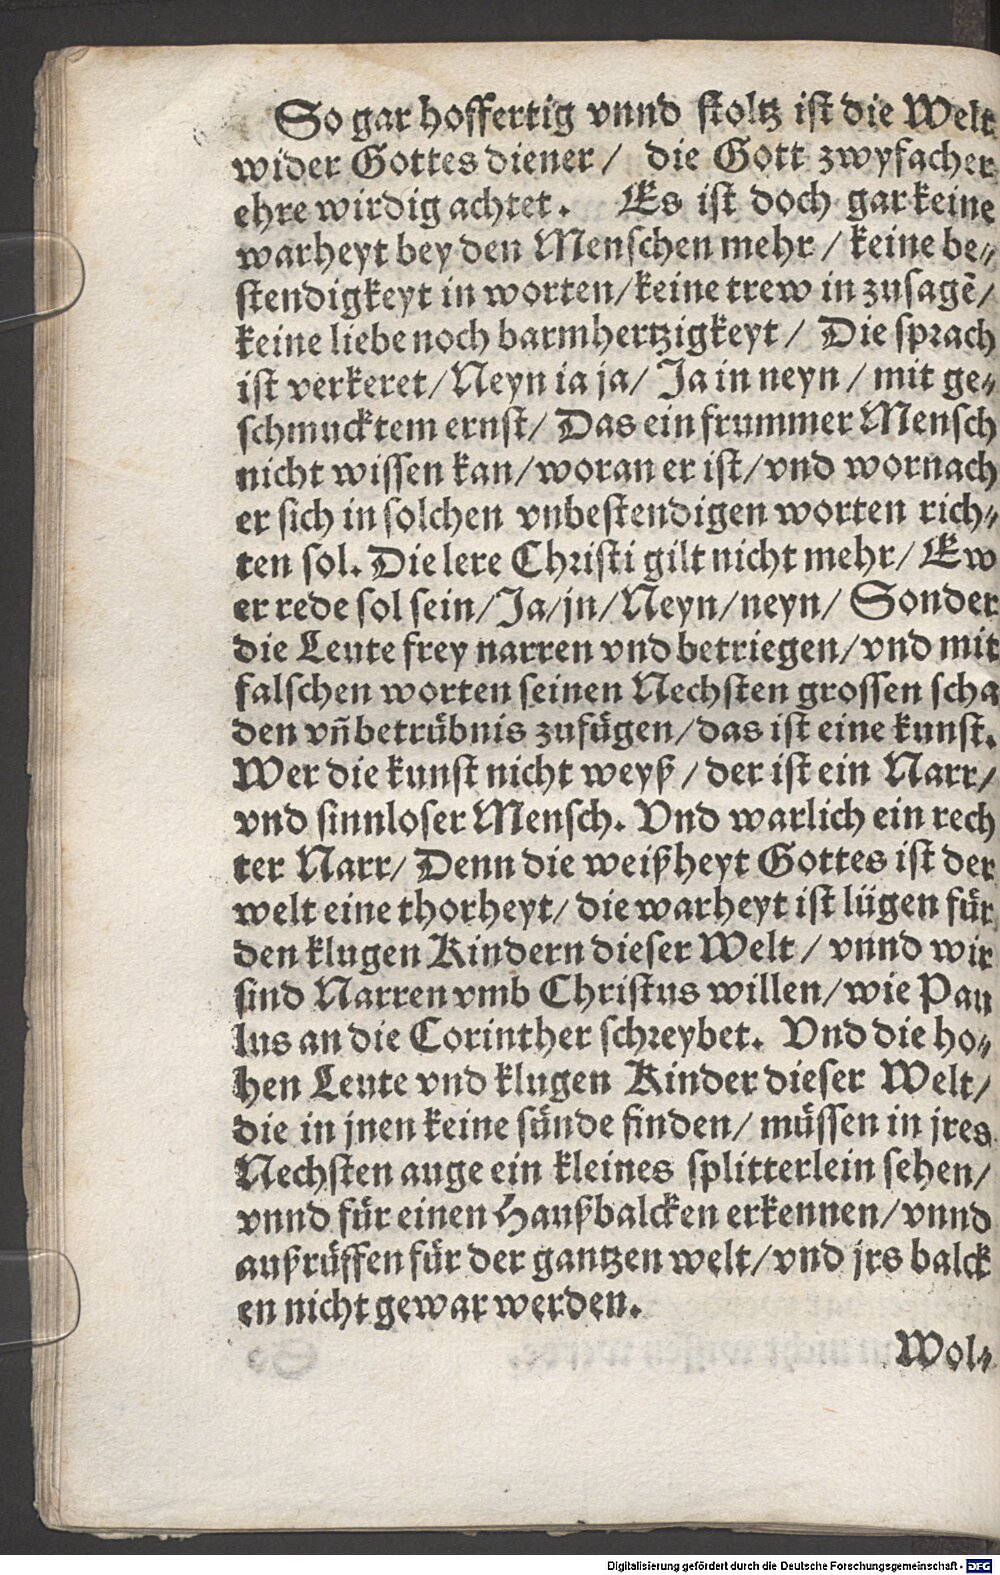 So gar hoffertig vnnd stoltz ist die Welt
wider Gottes diener / die Gott zwyfacher
ehre wirdig achtet. Es ist doch gar keine
warheyt bey den Menschen mehr / keine be⸗
stendigkeyt in worten/keine trew in zusagẽ/
keine liebe noch barmhertzigkeyt / Die sprach
ist verkeret/Neyn ia ja/ Ja in neyn / mit ge⸗
schmucktem ernst/ Das ein frummer Mensch
nicht wissen kan/woran er ist/vnd wornach
er sich in solchen vnbestendigen worten rich⸗
ten sol. Die lere Christi gilt nicht mehr/ Ew
er rede sol sein/Ja/jn/Neyn/neyn/ Sonder
die Leute frey narren vnd betriegen/vnd mit
falschen worten seinen Nechsten grossen scha
den vñ betrübnis zufügen/das ist eine kunst.
Wer die kunst nicht weyß / der ist ein Narr/
vnd sinnloser Mensch. Vnd warlich ein rech
ter Narr/ Denn die weißheyt Gottes ist der
welt eine thorheyt/ die warheyt ist lügen für
den klugen Kindern dieser Welt / vnnd wir
sind Narren vmb Christus willen/wie Pau
lus an die Corinther schreybet. Vnd die ho⸗
hen Leute vnd klugen Kinder dieser Welt/
die in jnen keine sünde finden/ müssen in jres
Nechsten auge ein kleines splitterlein sehen/
vnnd für einen Haußbalcken erkennen/vnnd
außrüffen für der gantzen welt/vnd jrs balck
en nicht gewar werden.
Wol⸗
Digitalisierung gefördert durch die Deutsche Forschungsgemeinschaft - DFG